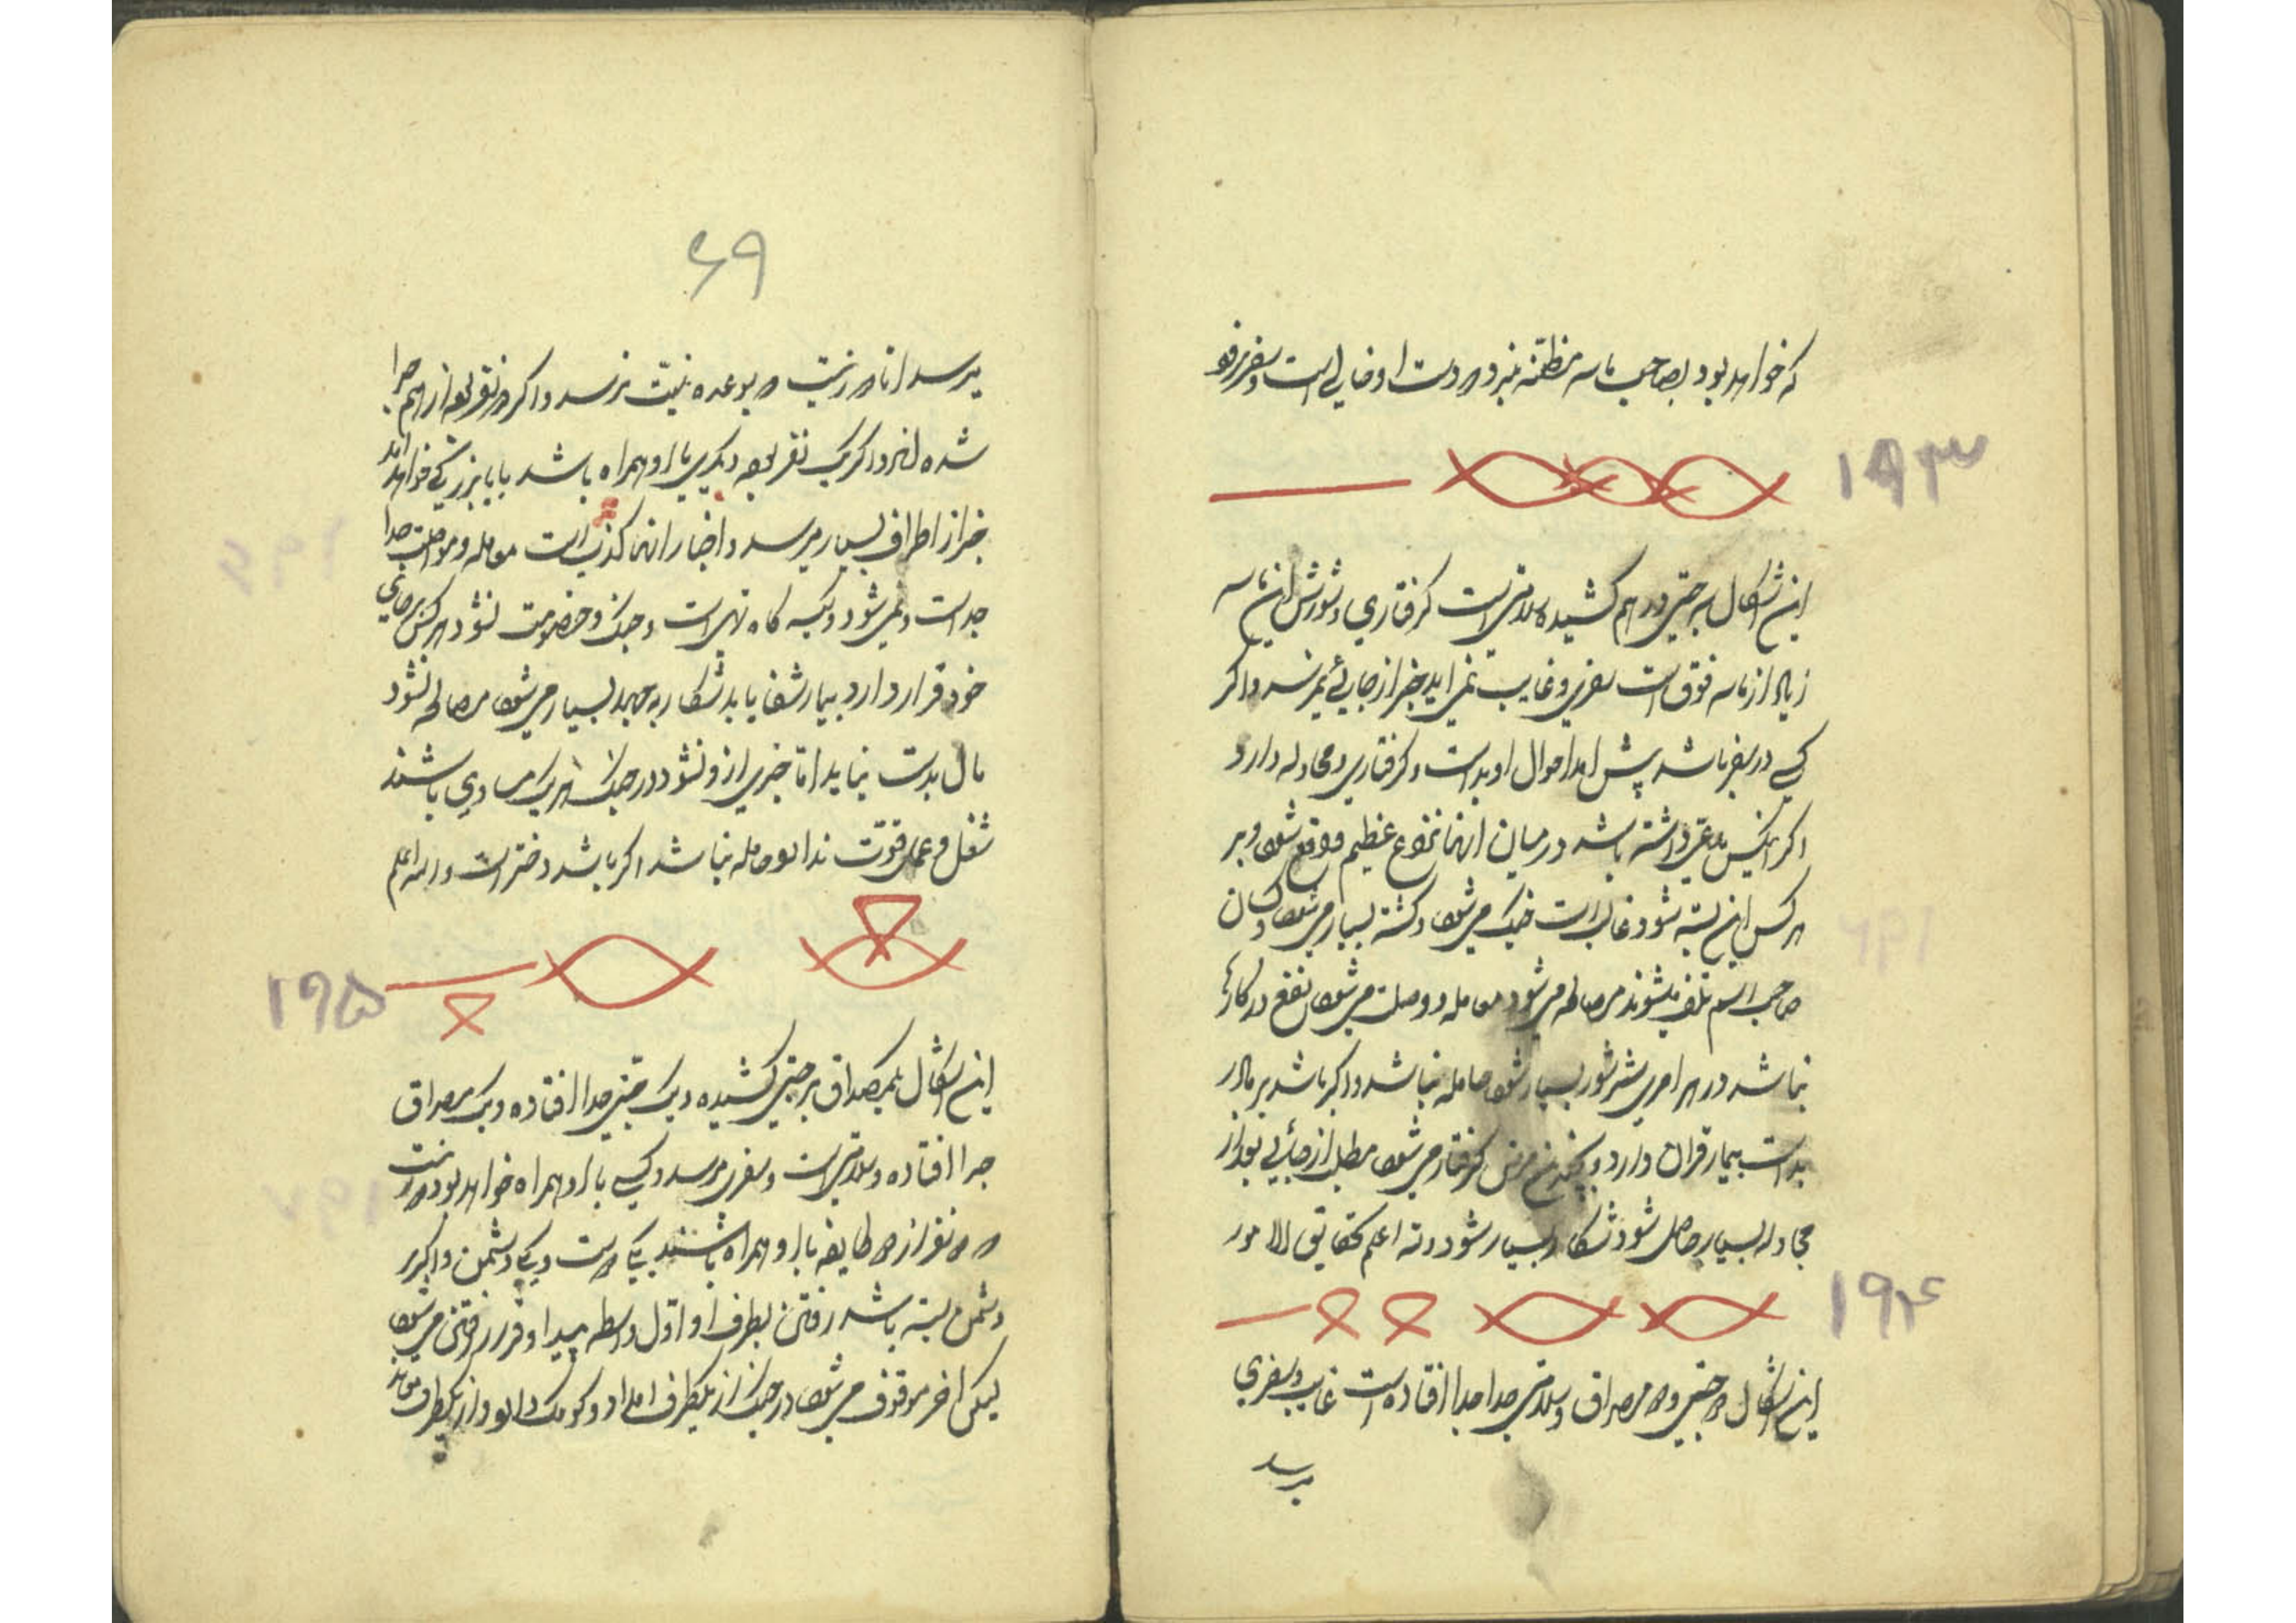 که خواهد بود بصاحب ماسه مظنه نبرد دست او خالی است و سفر نرو
۱۹۳
این اشکال بر جتی در هم کشیده سلامتی است گرفتاری و شورش این ماسه
زیاد از ماسه فوق است سفری و غایب نمی اید خبر از جایی نمیرسد و اگر
کسی در سفر باشد پیش امد احوال او بد است و گرفتاری و مجادله دارد
اگر انکس مدعی داشته باشد در میان انها نزوع عظیم واقع شود و بر
هر کس این بسته شود غالب است جنک میشود و کشته بسیار میشود و کسان
صاحب اسم تلف میشوند مصالحه میشود معامله و وصلت میشود نفع در کارها
نباشد در هر امری شر شور بسیار شود حامله نباشد و اگر باشد بر مادر
بد است بیمار قران دارد و بچند مرض گرفتار میشود مطلب از جایی نودار
مجادله بسیار حاصل شود شکار بسیار شود والله اعلم بحقایق الامور
۱۹۴
این اشکال دو جتی و دو مصداق و سلامتی جدا جدا افتاده است غایب و سفری
میرسد
۶۹
میرسد اما در نیت و بوعده نیت نرسد و اگر دو نفر بوده از هم جدا
شده اند و اگر یک نفر بوده دیگری با او همراه باشد یا با بزرگی خواهد امد
خبر از اطراف بسیار میرسد و اخبار انها کذب است معامله و مواصلت جدا
جد است و نمی شود و کیسه گاه تهی است و جنک و خصومت نشود هر کس بر جای
خود قرار دارد بیمار شفا یابد شکار به جهد بسیار میشود مصالحه نشود
مال بدست نیاید اما خبری از و نشود در جنک هر یک مساوی باشند
شغل و عمل قوت ندارد حامله نباشد اگر باشد دختر است والله اعلم
۱۹۵
این اشکال یک مصداق بر جتی کشیده و یک جتی جدا افتاده و یک مصداق
جدا افتاده و سلامتی است و سفری میرسد و کسی با او همراه خواهد بود در نیت
دو نفر از دو طایفه با او همراه باشند یکی دوست و یکی دشمن و اگر بر
دشمن بسته باشد رفتن بطرف او اول واسطه پیدا و قرار رفتن میشود
لیکن اخر موقوف میشود در جنک از یکطرف امداد و کومک دارد و از یکطرف میماند